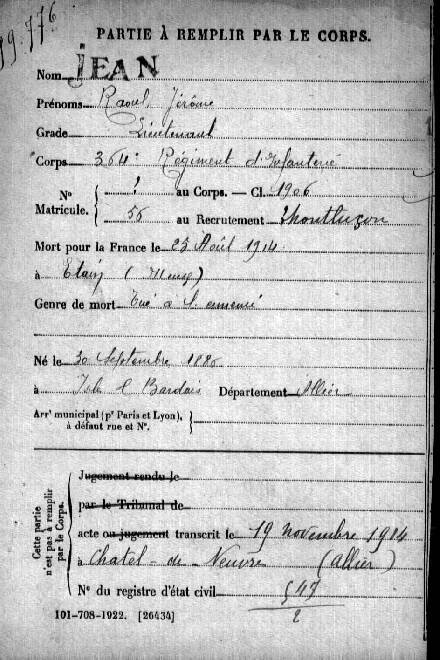 19.776
PARTIE À REMPLIR PAR LE CORPS.
Nom JEAN
Prénoms Raoul Jérôme
Grade Lieutenant
Corps 364e Régiment d'Infanterie
No Matricule. { ! au Corps. — Cl. 1906
56 au Recrutement Montluçon
Mort pour la France le 25 Août 1914
à Etain (Meuse)
Genre de mort Tué à l'ennemi
Né le 30 Septembre 1886
à Isle et Bardais Département Allier
Arr' municipal (pr Paris et Lyon), à défaut rue et No. }
Cette partie n'est pas à remplir par le Corps.
Jugement rendu le
par le Tribunal de
acte ou jugement transcrit le 19 novembre 1914
à Chatel-de-Neuvre (Allier)
No du registre d'état civil 547/2
101-708-1922. [26434]